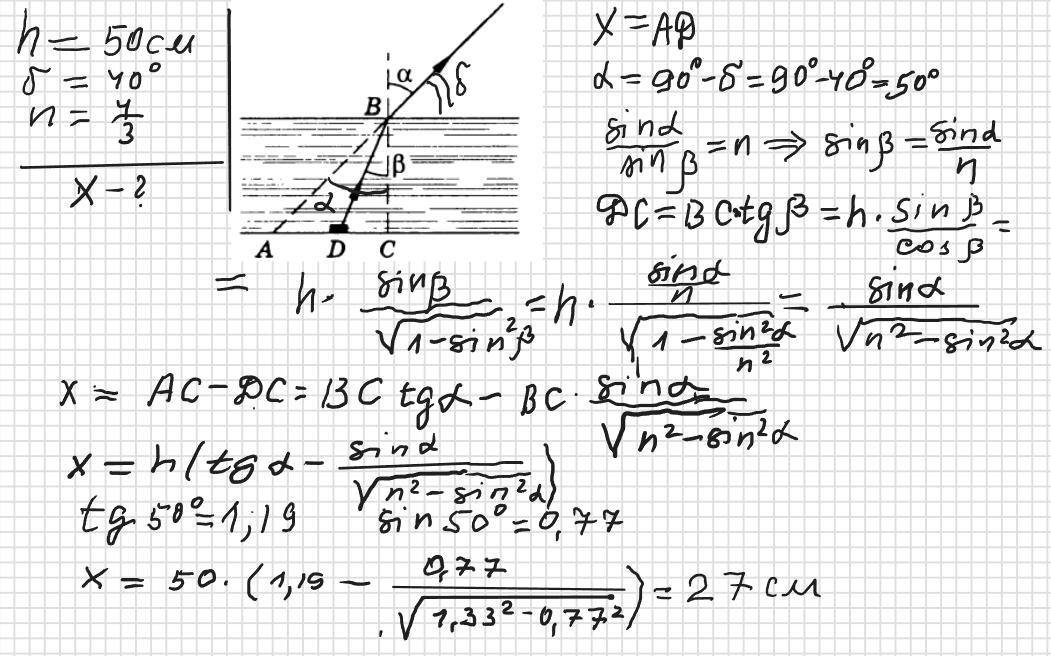 h = 50 см
δ = 40°
n = 4/3
x - ?
α δ
B
β
α
A D C
X = AD
α = 90° - δ = 90° - 40° = 50°
sinα/sinβ = n ⇒ sinβ = sinα/n
DC = BC·tgβ = h · sinβ/cosβ =
= h · sinβ/√(1 - sin²β) = h · (sinα/n)/√(1 - sin²α/n²) = sinα/√(n² - sin²α)
x = AC - DC = BC tgα - BC · sinα/√(n² - sin²α)
x = h(tgα - sinα/√(n² - sin²α))
tg 50° = 1,19 sin 50° = 0,77
x = 50 · (1,19 - 0,77/√(1,33² - 0,77²)) = 27 см